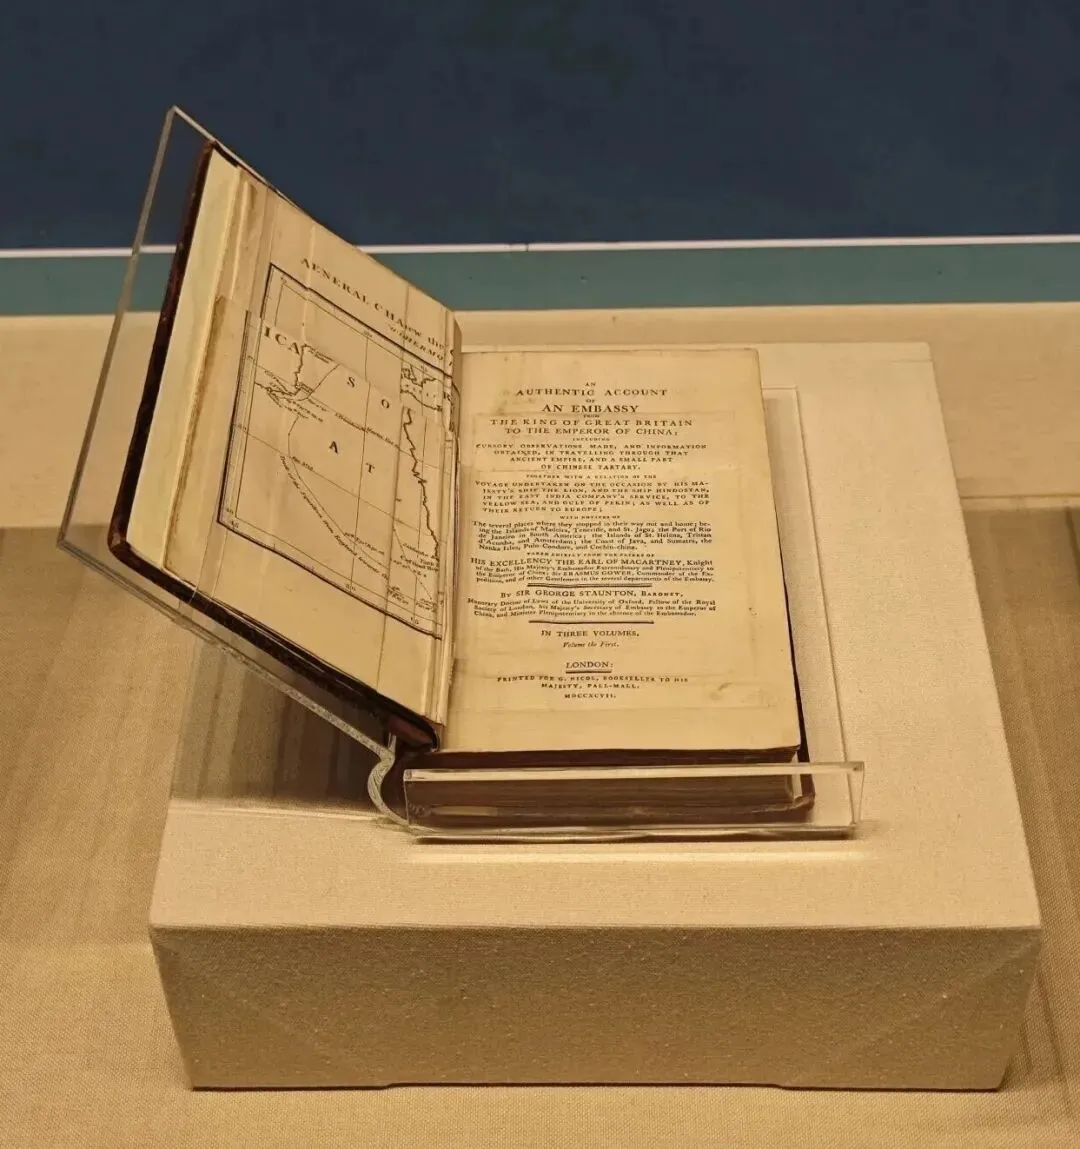 GENERAL CHA
ICA
S
O
A
T
AN
AUTHENTIC ACCOUNT
OF
AN EMBASSY
FROM
THE KING OF GREAT BRITAIN
TO THE EMPEROR OF CHINA;
INCLUDING
CURSORY OBSERVATIONS MADE, AND INFORMATION
OBTAINED, IN TRAVELLING THROUGH THAT
ANCIENT EMPIRE, AND A SMALL PART
OF CHINESE TARTARY.
TOGETHER WITH A RELATION OF THE
VOYAGE UNDERTAKEN ON THE OCCASION BY HIS MA-
JESTY'S SHIP THE LION, AND THE SHIP HINDOSTAN,
IN THE EAST INDIA COMPANY'S SERVICE, TO THE
YELLOW SEA, AND GULF OF PEKIN; AS WELL AS OF
THEIR RETURN TO EUROPE;
WITH NOTICES OF
The several places where they stopped in their way out and home; be-
ing the Islands of Madeira, Teneriffe, and St. Jago; the Port of Rio
de Janeiro in South America; the Islands of St. Helena, Tristan
d'Acunha, and Amsterdam; the Coast of Java, and Sumatra, the
Nanka Isles, Pulo Condore, and Cochin-china.
TAKEN CHIEFLY FROM THE PAPERS OF
HIS EXCELLENCY THE EARL OF MACARTNEY, Knight
of the Bath, His Majesty's Embassador Extraordinary and Plenipotentiary to
the Emperor of China; Sir ERASMUS GOWER, Commander of the Ex-
pedition, and of other Gentlemen in the several departments of the Embassy.
By SIR GEORGE STAUNTON, Baronet,
Honorary Doctor of Laws of the University of Oxford, Fellow of the Royal
Society of London, his Majesty's Secretary of Embassy to the Emperor of
China, and Minister Plenipotentiary in the absence of the Embassador.
IN THREE VOLUMES.
Volume the First.
LONDON:
PRINTED FOR G. NICOL, BOOKSELLER TO HIS
MAJESTY, PALL-MALL.
MDCCXCVII.